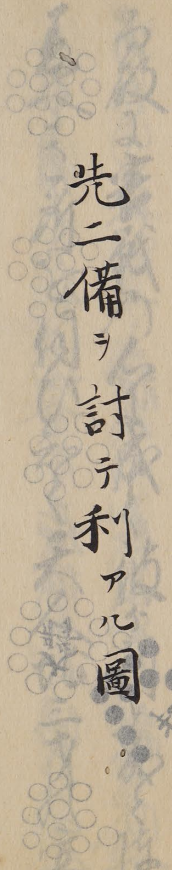 先二備ヲ討テ利アル圖